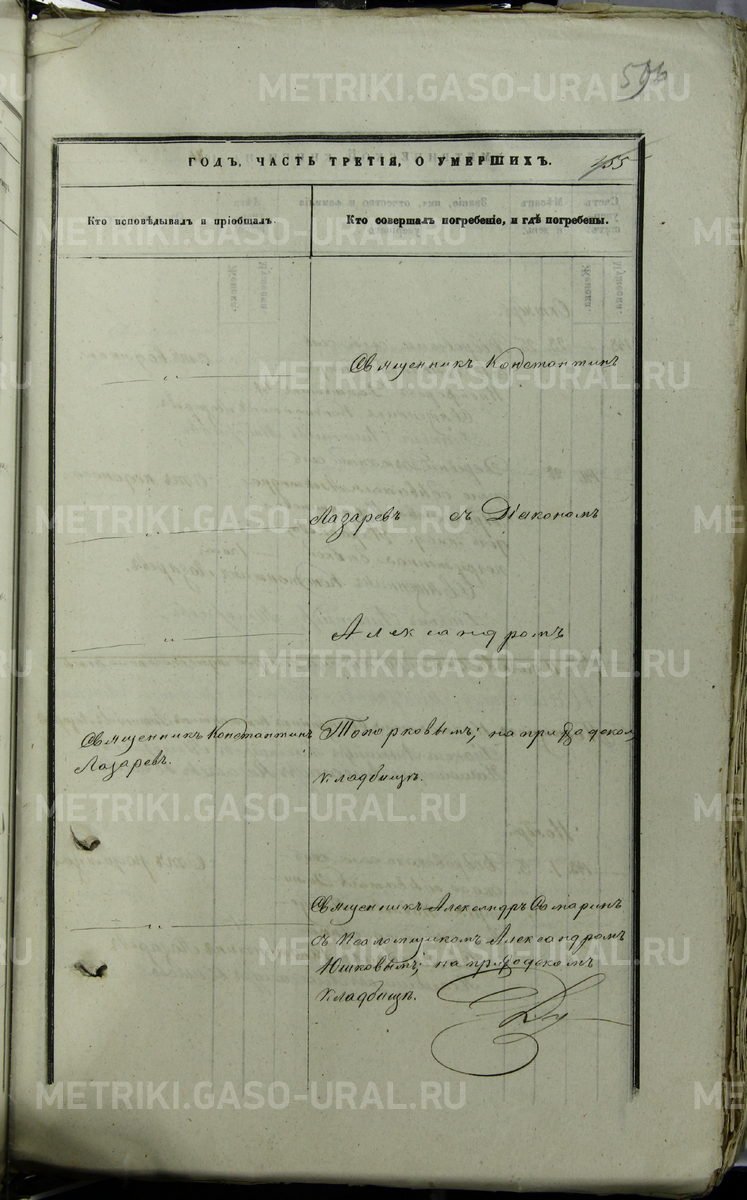 596
ГОДЪ, ЧАСТЬ ТРЕТІЯ, О УМЕРШИХЪ.
155
Кто исповѣдывалъ и пріобщалъ.
Кто совершалъ погребеніе, и гдѣ погребены.
Священникъ Константинъ
Лазаревъ съ Діакономъ
Александромъ
Священникъ Константинъ
Лазаревъ.
Топорковымъ; на приходском
кладбищѣ.
Священникъ Александръ Самаринъ
съ Псаломщикомъ Александромъ
Юшковымъ; на приходскомъ
кладбищѣ.
METRIKI.GASO-URAL.RU